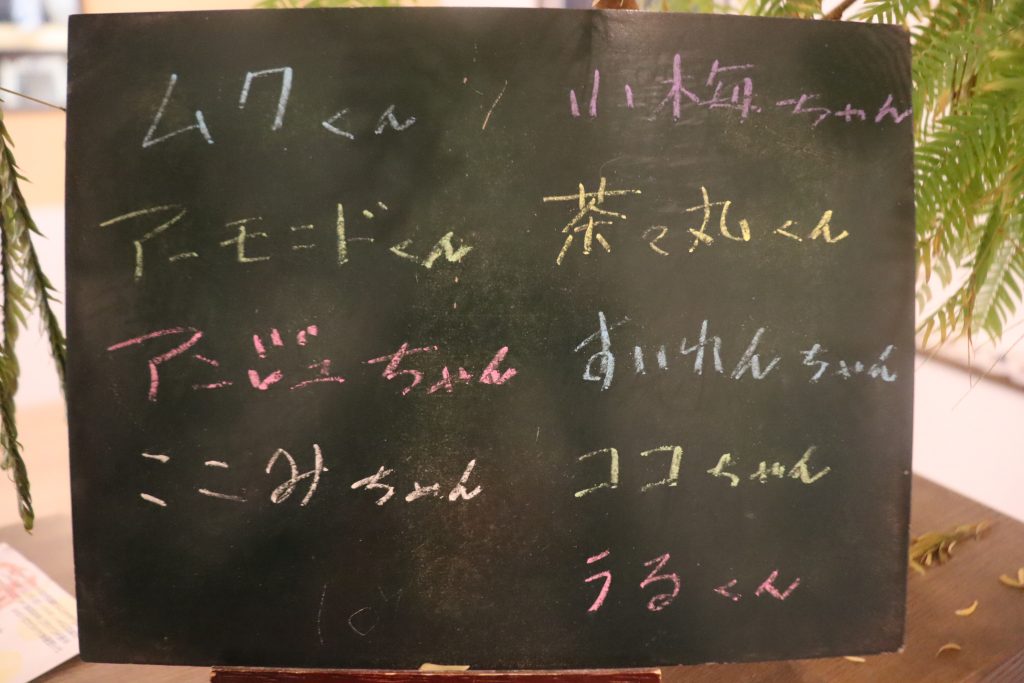 ムクくん
アーモンドくん
アンジュちゃん
ここみちゃん
小梅ちゃん
茶々丸くん
すいれんちゃん
ココちゃん
うるくん